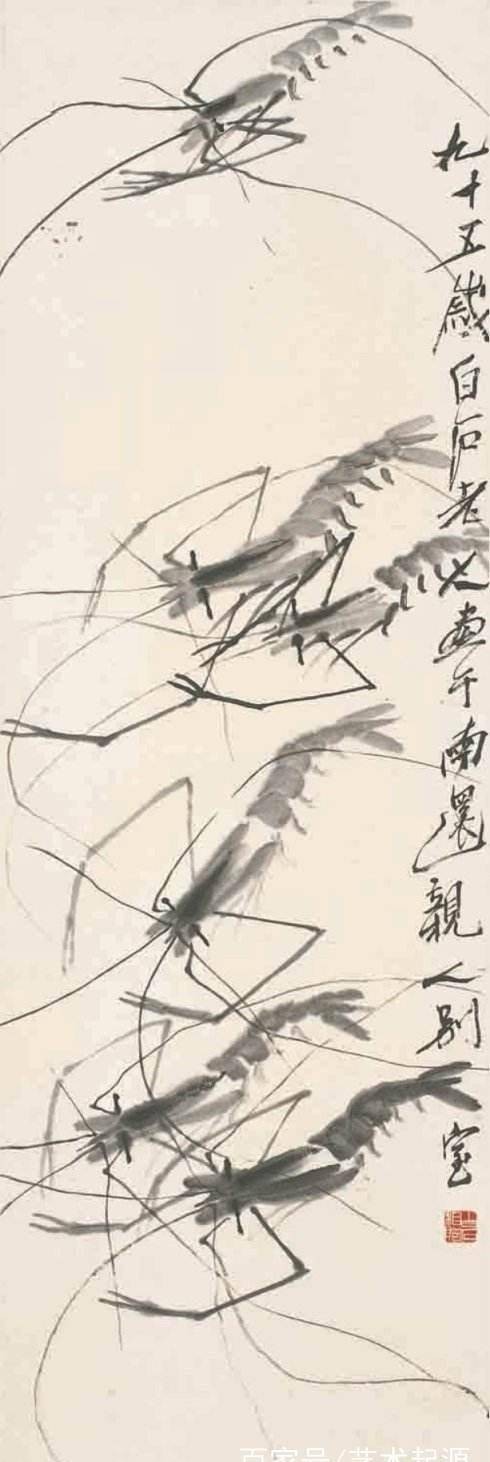 九十五歲白石老人畫于南還親人別室
百家号/艺术起源